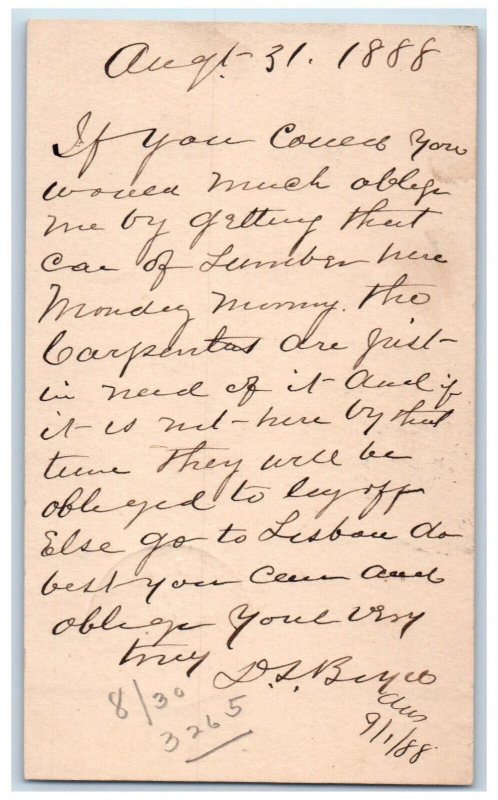 Augt 31. 1888
If you could you
would much oblige
me by getting that
car of Lumber here
Monday morning. the
Carpenters are just
in need of it and if
it is not here by that
time they will be
obliged to lay off
Else go to Lisbon do
best you can and
oblige Yours Very
truly D. S.
8/30
3265
9/1/88